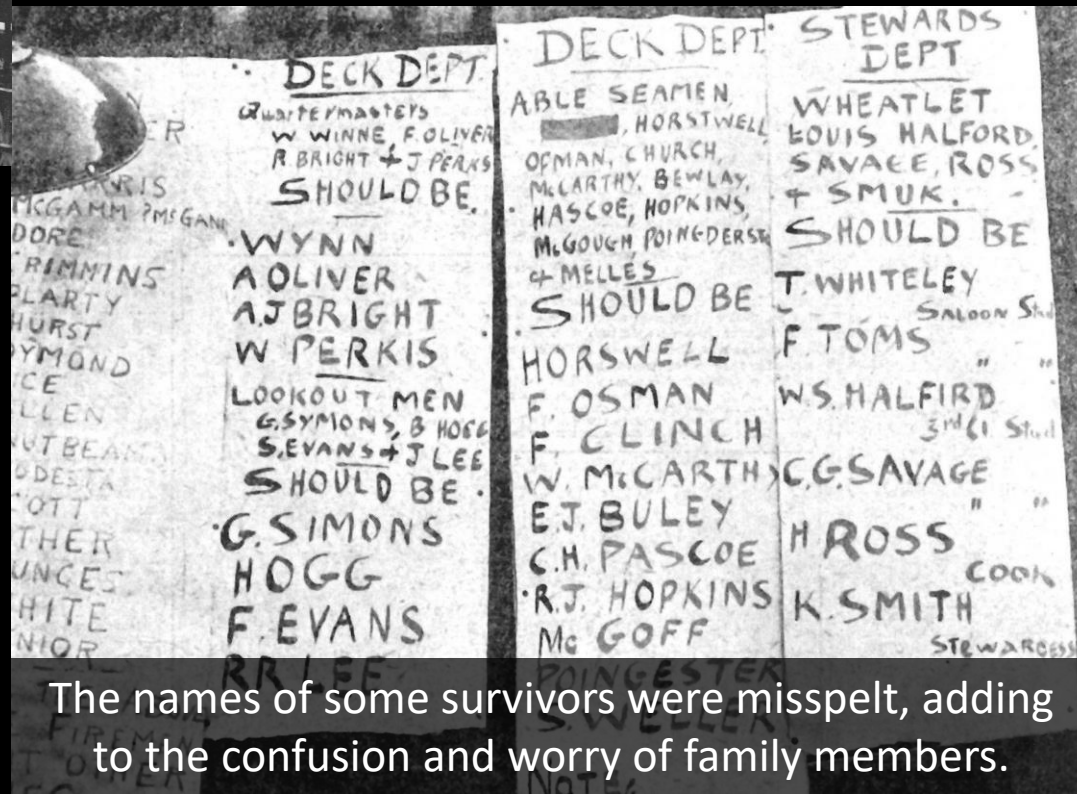 ER
ARRIS
McGAMM ?McGANN
DORE
RIMMINS
LARTY
HURST
YMOND
CE
LLEN
UTBEAN
ODESTA
COTT
THER
UNGES
HITE
NIOR
FIREMEN
DECK DEPT.
Quartermasters
W WINNE, F. OLIVER
R. BRIGHT + J PERKS
SHOULD BE.
WYNN
A OLIVER
A.J BRIGHT
W PERKIS
LOOKOUT MEN
G. SYMONS, B HOGG
S. EVANS + J LEE
SHOULD BE
G. SIMONS
HOGG
F. EVANS
RR LEE
DECK DEPT
ABLE SEAMEN
, HORSTWELL
OFMAN, CHURCH,
McCARTHY, BEWLAY,
HASCOE, HOPKINS,
McGOUGH POINGDERST
+ MELLES
SHOULD BE
HORSWELL
F. OSMAN
F CLINCH
W. McCARTHY
E.J. BULEY
C.H. PASCOE
R.J. HOPKINS
Mc GOFF
POINGESTER
S. WELLER
NOTE
STEWARDS
DEPT
WHEATLET
LOUIS HALFORD.
SAVAGE, ROSS
+ SMUK.
SHOULD BE
T. WHITELEY
SALOON Std
F. TOMS
" "
W.S. HALFIRD
3rd Cl Std
C.G. SAVAGE
" "
H ROSS
COOK
K. SMITH
STEWARDESS
The names of some survivors were misspelt, adding
to the confusion and worry of family members.